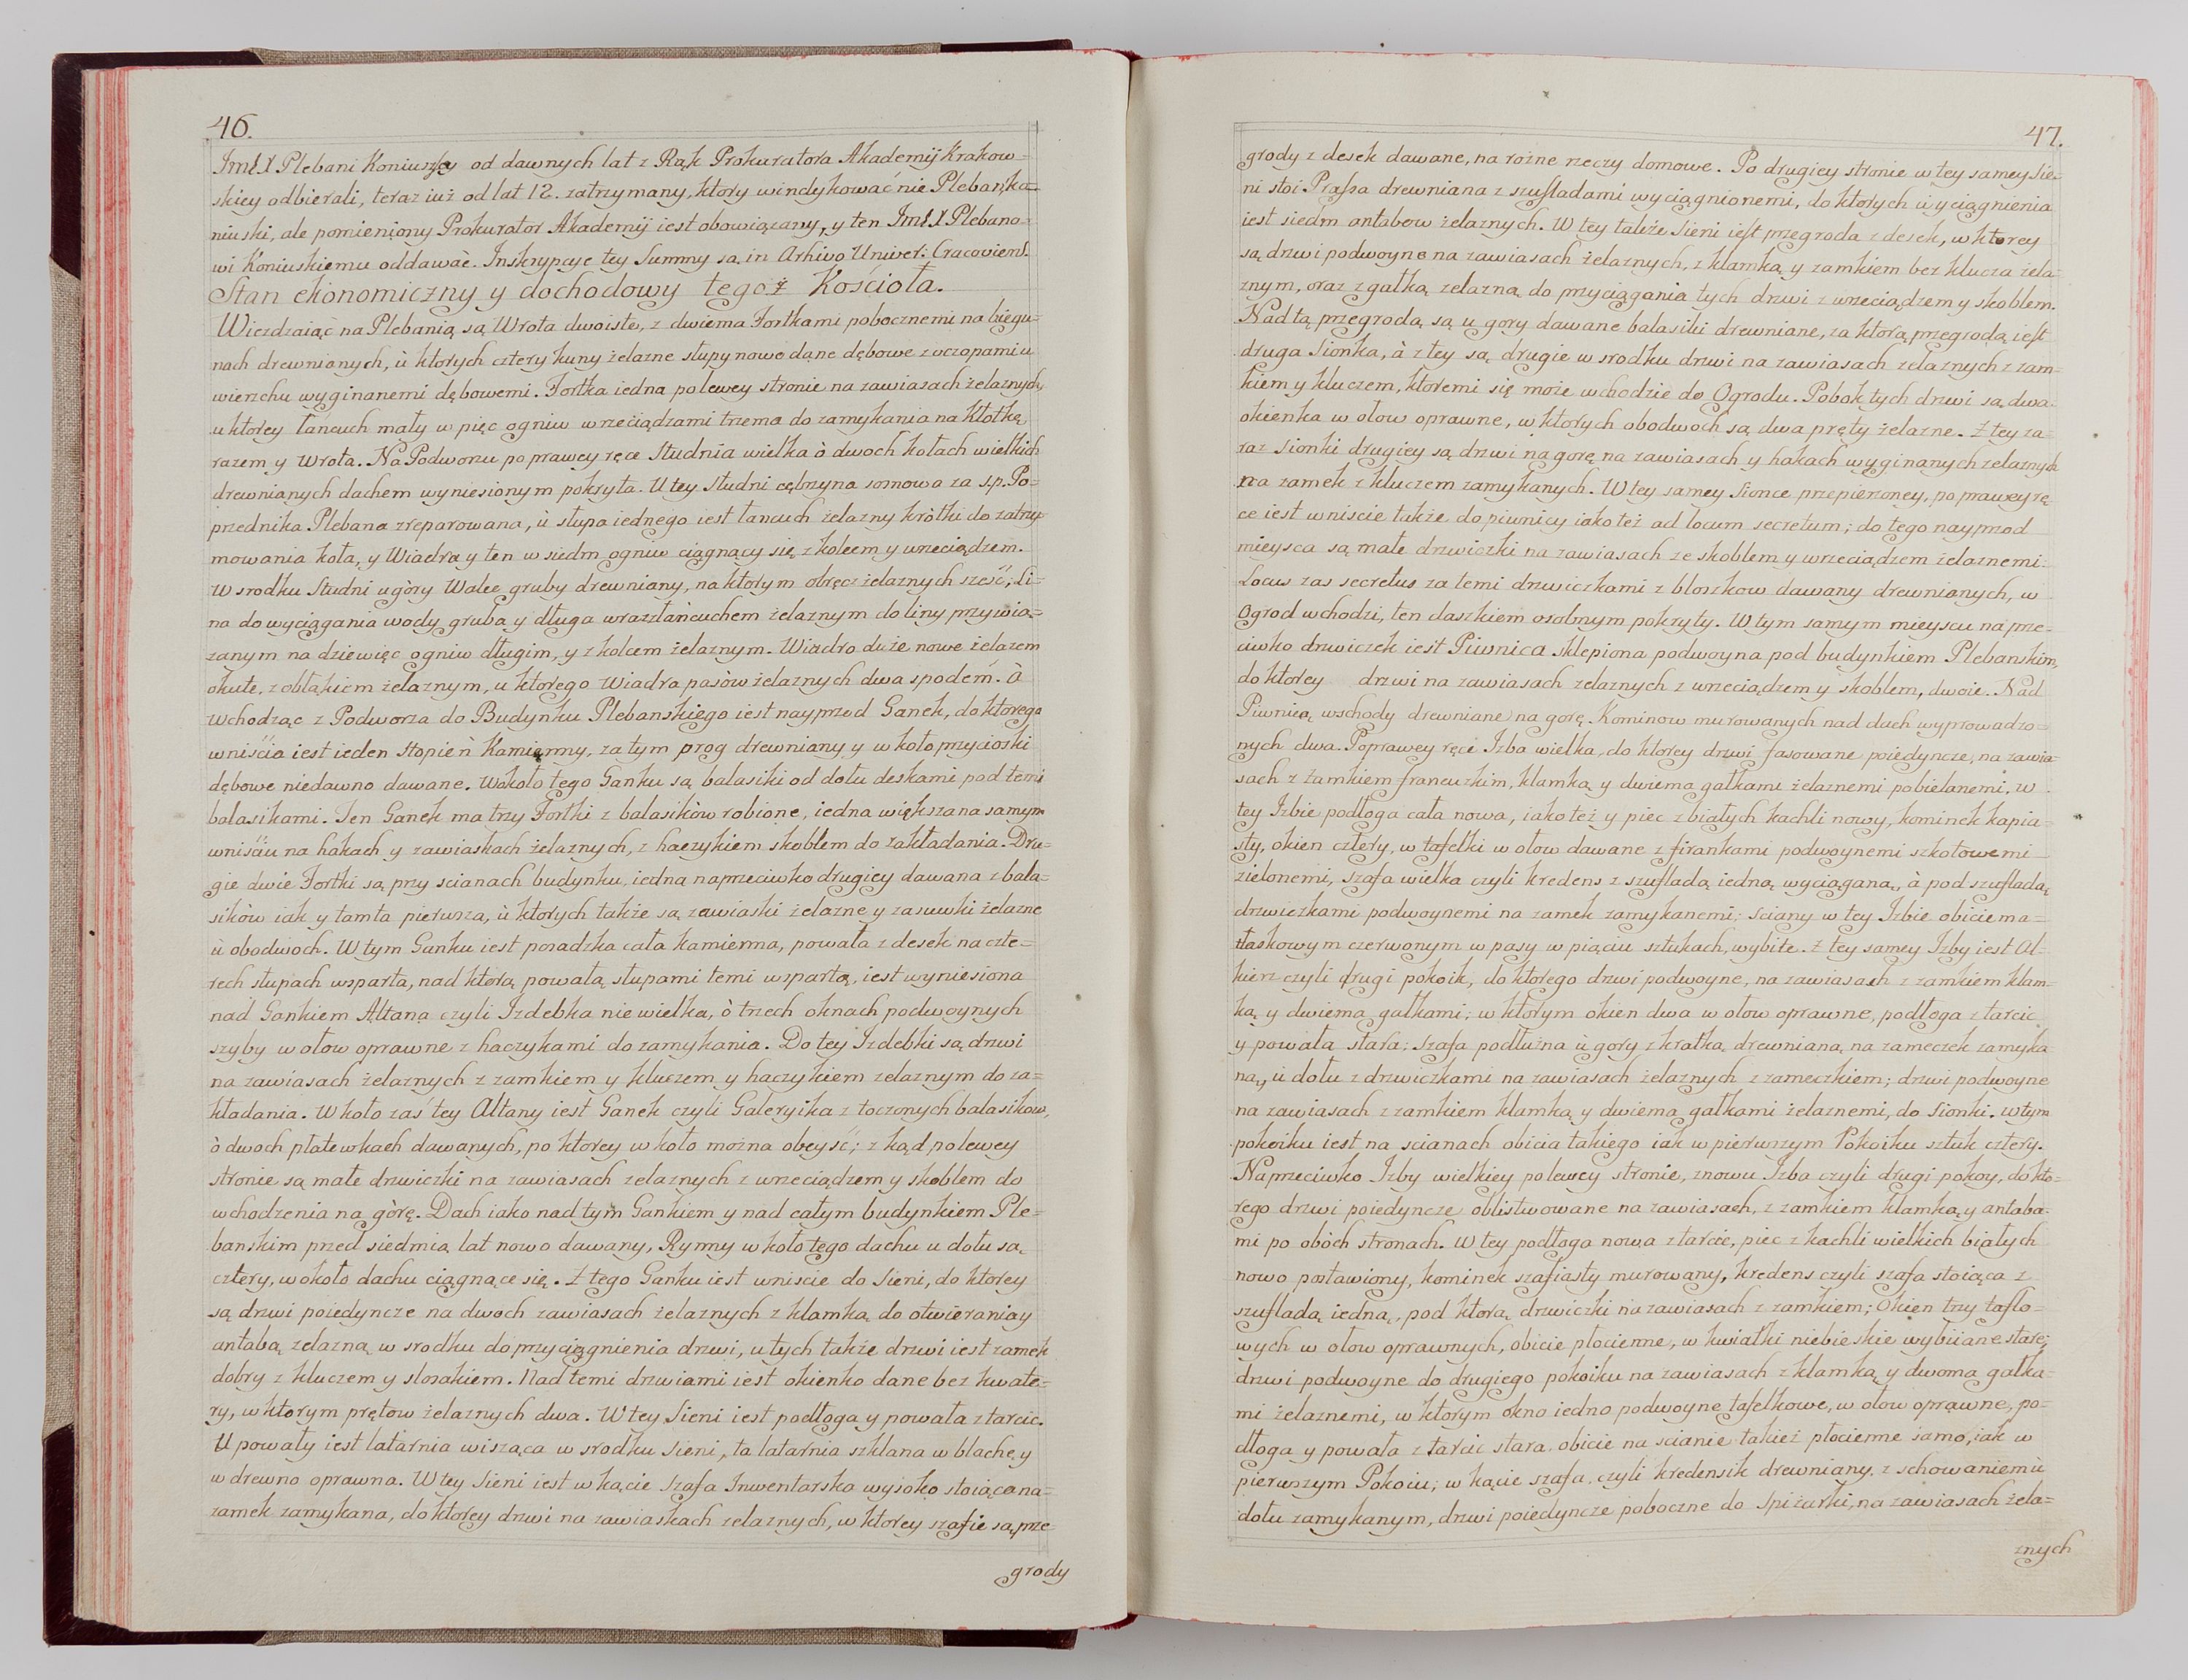 46.
JmEX Plebani Koniuszy od dawnych lat z Rąk Prokuratora Akademij Krakow=
skiey odbierali, teraz iuż od lat 12. zatrzymany, ktory windykować nie Plebanko=
niuski, ale pomieniony Prokurator Akademij iest obowiązany, y ten JmEX Plebano=
wi Koniuskiemu oddawać. Inskrypcye tey Summy są in Arhivo Univer: Cracoviens.
Stan ekonomiczny y dochodowy tegoż Kościoła.
Wiezdzaiąc na Plebanią są Wrota dwoiste, z dwiema Fortkami pobocznemi na biegu=
nach drewnianych, ù ktorych cztery kuny żelazne słupy nowe dane dębowe z oczopami u
wierzchu wyginanemi dębowemi. Fortka iedna po lewey stronie na zawiasach żelaznych,
u ktorey łancuch mały w pięc ogniw wrzeciądzami trzema do zamykania na kłotkę,
razem y Wrota. Na Podworzu po prawey ręce Studnia wielka ò dwoch kołach wielkich
drewnianych dachem wyniesionym pokryta. U tey Studni cębrzyna sosnowa za s.p. Po=
przednika Plebana zreparowana, ù słupa iednego iest łancuch żelazny kròtki do zatrzy=
mowania koła, y Wiadra y ten w siedm ogniw ciągnący się z kolcem y wrzeciądzem.
W srodku Studni ugòry Walec gruby drewniany, na ktorym obręcz żelaznych sześć, Li=
na do wyciągania wody gruba y długa wraz z łańcuchem żelaznym do liny przywią=
zanym na dziewięc ogniw długim, y z kolcem żelaznym. Wiadro duże nowe żelazem
okute, z obłąkiem żelaznym, u ktorego Wiadra pasòw żelaznych dwa spodem. à
Wchodząc z Podworza do Budynku Plebanskiego iest nayprzod Ganek, do ktorego
wniścia iest ieden Stopień Kamienny, za tym prog drewniany, y w koło przycioski
dębowe niedawno dawane. Wokoło tego Ganku są balasiki od dołu deskami pod temi
balasikami. Ten Ganek ma trzy Fortki z balasikòw robione, iedna większa na samym
wniściu na hakach y zawiaskach żelaznych, z haczykiem skoblem do zakładania. Dru=
gie dwie Fortki są przy scianach budynku, iedna naprzeciwko drugiey dawana z bala=
sikòw iak y tamta pierwsza, ù ktorych także są zawiaski żelazne y zasuwki żelazne
ù obodwoch. W tym Ganku iest posadzka cała kamienna, powała z desek na czte=
rech słupach wsparta, nad ktorą powałą słupami temi wspartą, iest wyniesiona
nad Gankiem Altana czyli Izdebka nie wielka, ò trzech oknach podwoynych
szyby w ołow oprawne z haczykami do zamykania. Do tey Izdebki są drzwi
na zawiasach żelaznych z zamkiem y kluczem y haczykiem żelaznym do za=
kładania. W koło zaś tey Altany iest Ganek czyli Galeryika z toczonych balasikow,
ò dwoch płatewkach dawanych, po ktorey w koło można obeyść; z kąd po lewey
stronie są małe drzwiczki na zawiasach żelaznych z wrzeciądzem y skoblem do
wchodzenia na gòrę. Dach iako nad tym Gankiem y nad całym budynkiem Ple=
banskim przed siedmią lat nowo dawany, Rynny w koło tego dachu u dołu są
cztery, wokoło dachu ciągnące się. Z tego Ganku iest wniscie do Sieni, do ktorey
są drzwi poiedyncze na dwoch zawiasach żelaznych z klamką do otwierania y
antabą żelazną w srodku do przyciągnienia drzwi, u tych także drzwi iest zamek
dobry z kluczem y slosakiem. Nad temi drzwiami iest okienko dane bez kwate=
ry, w ktorym prętow żelaznych dwa. W tey Sieni iest podłoga y powała z tarcic.
U powały iest latarnia wisząca w srodku Sieni, ta latarnia szklana w blachę y
w drewno oprawna. W tey Sieni iest w kącie Szafa Inwentarska wysoko stoiąca na=
zamek zamykana, do ktorey drzwi na zawiaskach żelaznych, w ktorey szafie są prze=
grody
47.
grody z desek dawane, na rożne rzeczy domowe. Po drugiey stronie w tey samey Sie=
ni stoi Prassa drewniana z szufladami wyciągnionemi, do ktorych wyciągnienia
iest siedm antabow żelaznych. W tey także Sieni iest przegroda z desek, w ktorey
są drzwi podwoyne na zawiasach żelaznych, z klamką y zamkiem bez klucza żela=
znym, oraz z gałką żelazną do przyciągania tych drzwi z wrzeciądzem y skoblem.
Nad tą przegrodą są u gory dawane balasiki drewniane, za ktorą przegrodą iest
druga Sionka, à z tey są drugie w srodku drzwi na zawiasach żelaznych z zam=
kiem y kluczem, ktoremi się może wchodzić do Ogrodu. Pobok tych drzwi są dwa
okienka w ołow oprawne, w ktorych obodwoch są dwa pręty żelazne. Z tey za=
raz Sionki drugiey są drzwi na gorę na zawiasach y hakach wyginanych żelaznych
na zamek z kluczem zamykanych. W tey samey Sionce przepierzoney, po prawey rę
ce iest wniscie także do piwnicy iako też ad locum secretum; do tego nayprzod
mieysca są małe drzwiczki na zawiasach ze skoblem y wrzeciądzem żelaznemi:
Locus zas secretus za temi drzwiczkami z bloszkow dawany drewnianych, w
Ogrod wchodzi, ten daszkiem osobnym pokryty. W tym samym mieyscu na prze=
ciwko drzwiczek iest Piwnica sklepiona podwoyna pod budynkiem Plebanskim,
do ktorey drzwi na zawiasach żelaznych z wrzeciądzem y skoblem, dwoie. Nad
Piwnicą wschody drewniane na gorę. Kominow murowanych nad dach wyprowadzo=
nych dwa. Po prawey ręce Izba wielka, do ktorey drzwi fasowane poiedyncze, na zawia=
sach z zamkiem francuzkim, klamką y dwiema gałkami żelaznemi pobielanemi, w
tey Izbie podłoga cała nowa, iako też y piec z białych kachli nowy, kominek kapia=
sty, okien cztery, w tafelki w ołow dawane z firankami podwoynemi szkołowemi
zielonemi, szafa wielka czyli kredens z szufladą iedną wyciąganą, à pod szufladą
drzwiczkami podwoynemi na zamek zamykanemi; sciany w tey Izbie obiciem a=
tłaskowym czerwonym w pasy w piąciu sztukach, wybite. Z tey samey Izby iest Al=
kierz czyli drugi pokoik, do ktorego drzwi podwoyne, na zawiasach z zamkiem klam=
ką y dwiema gałkami; w ktorym okien dwa w ołow oprawne, podłoga z tarcic
y powała stara; szafa podłużna ù gory z kratką drewnianą na zameczek zamyka
na, ù dołu z drzwiczkami na zawiasach żelaznych z zameczkiem; drzwi podwoyne
na zawiasach z zamkiem klamką y dwiema gałkami żelaznemi, do Sionki. W tym
pokoiku iest na scianach obicia takiego iak w pierwszym Pokoiku sztuk cztery.
Naprzeciwko Izby wielkiey po lewey stronie, znowu Izba czyli drugi pokoy, do kto=
rego drzwi poiedyncze oblistwowane na zawiasach, z zamkiem klamką y antaba=
mi po obòch stronach. W tey podłoga nowa z tarcic, piec z kachli wielkich białych
nowo postawiony, kominek szafiasty murowany, kredens czyli szafa stoiąca z
szufladą iedną, pod ktorą drzwiczki na zawiasach z zamkiem; Okien trzy taflo=
wych w ołow oprawnych, obicie płocienne, w kwiatki niebieskie wybiiane stare;
drzwi podwoyne do drugiego pokoiku na zawiasach z klamką y dwoma gałka=
mi żelaznemi, w ktorym okno iedno podwoyne tafelkowe, w ołow oprawne, po=
dłoga y powała z tarcic stara, obicie na scianie takież płocienne samo, iak w
pierwszym Pokoiu; w kącie szafa, czyli kredensik drewniany, z schowaniem ù
dołu zamykanym, drzwi poiedyncze poboczne do Spiżarki, na zawiasach żela=
znych